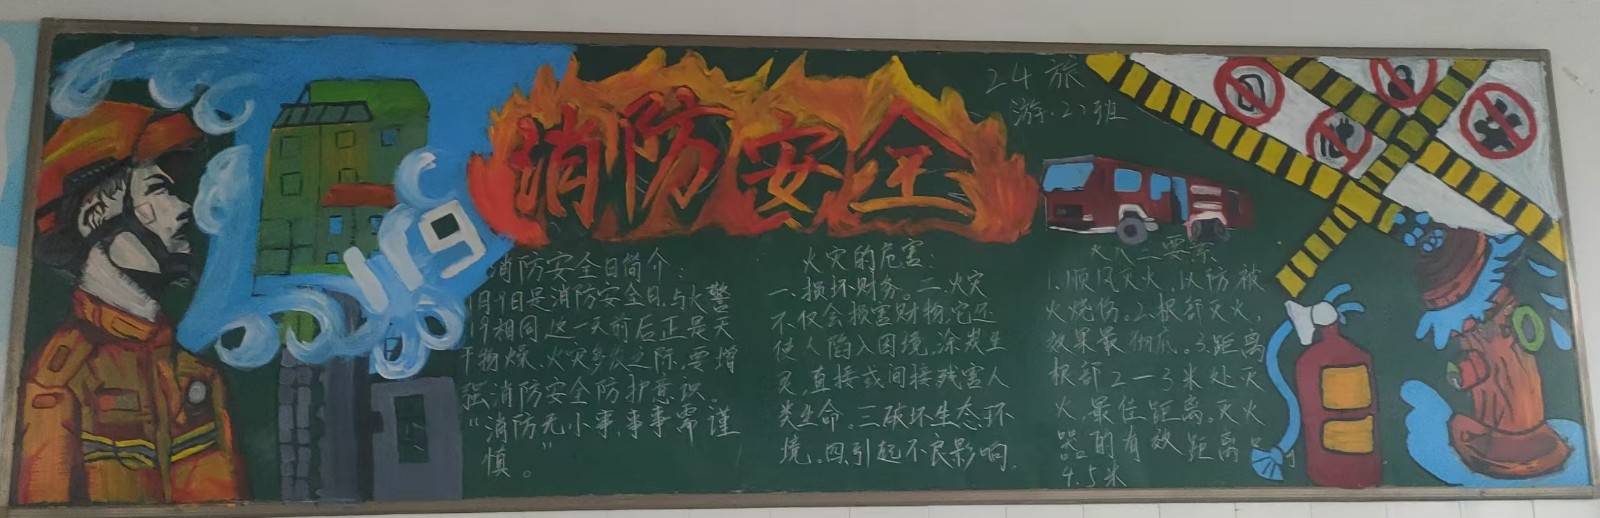 消防安全
24旅
游(2)班
119
消防安全日简介:
11月9日是消防安全日,与火警
119相同,这一天前后正是天
干物燥、火灾多发之际,要增
强消防安全防护意识。
“消防无小事,事事需谨
慎。”
火灾的危害:
一、损坏财务。二、火灾
不仅会损害财物,它还
使人陷入困境,涂炭生
灵,直接或间接残害人
类生命。三破坏生态环
境。四,引起不良影响.
灭火三要素
1.顺风灭火,以防被
火烧伤。2.根部灭火,
效果最彻底。3.距离
根部2一3米处灭
火,最佳距离。灭火
器的有效距离是
4.5米